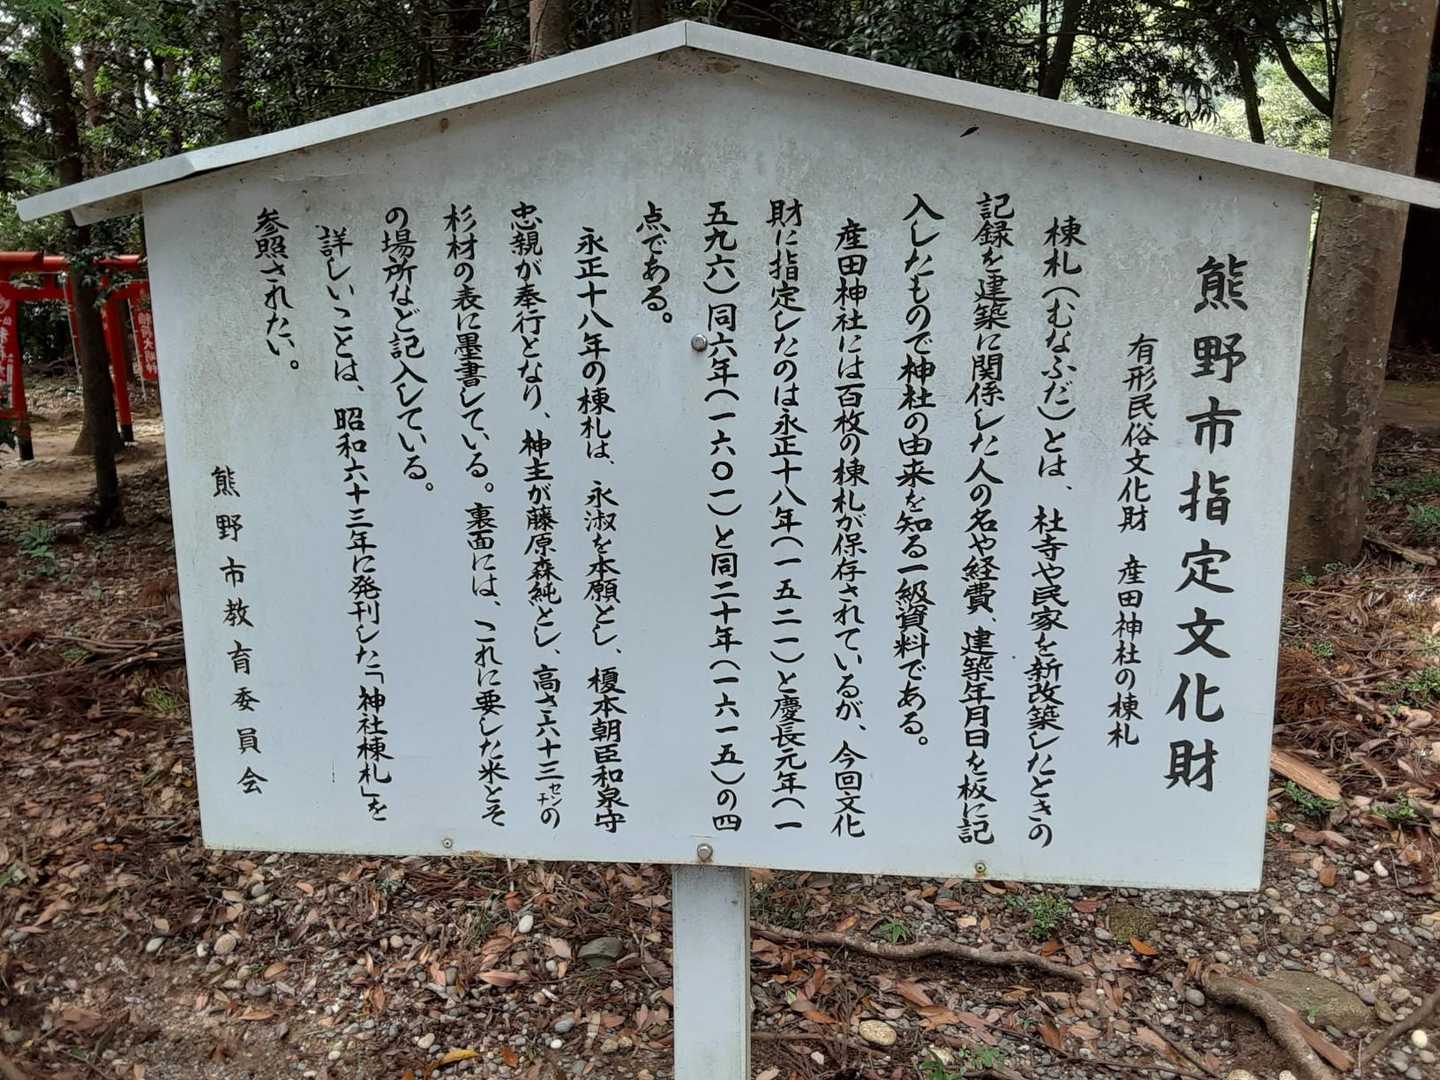 熊野市指定文化財
有形民俗文化財　産田神社の棟札
棟札（むなふだ）とは、社寺や民家を新改築したときの
記録を建築に関係した人の名や経費、建築年月日を板に記
入したもので神社の由来を知る一級資料である。
産田神社には百枚の棟札が保存されているが、今回文化
財に指定したのは永正十八年（一五二一）と慶長元年（一
五九六）同六年（一六〇一）と同二十年（一六一五）の四
点である。
永正十八年の棟札は、永淑を本願とし、榎本朝臣和泉守
忠親が奉行となり、神主が藤原森純とし、高さ六十三センチの
杉材の表に墨書している。裏面には、これに要した米とそ
の場所など記入している。
詳しいことは、昭和六十三年に発刊した「神社棟札」を
参照されたい。
熊野市教育委員会